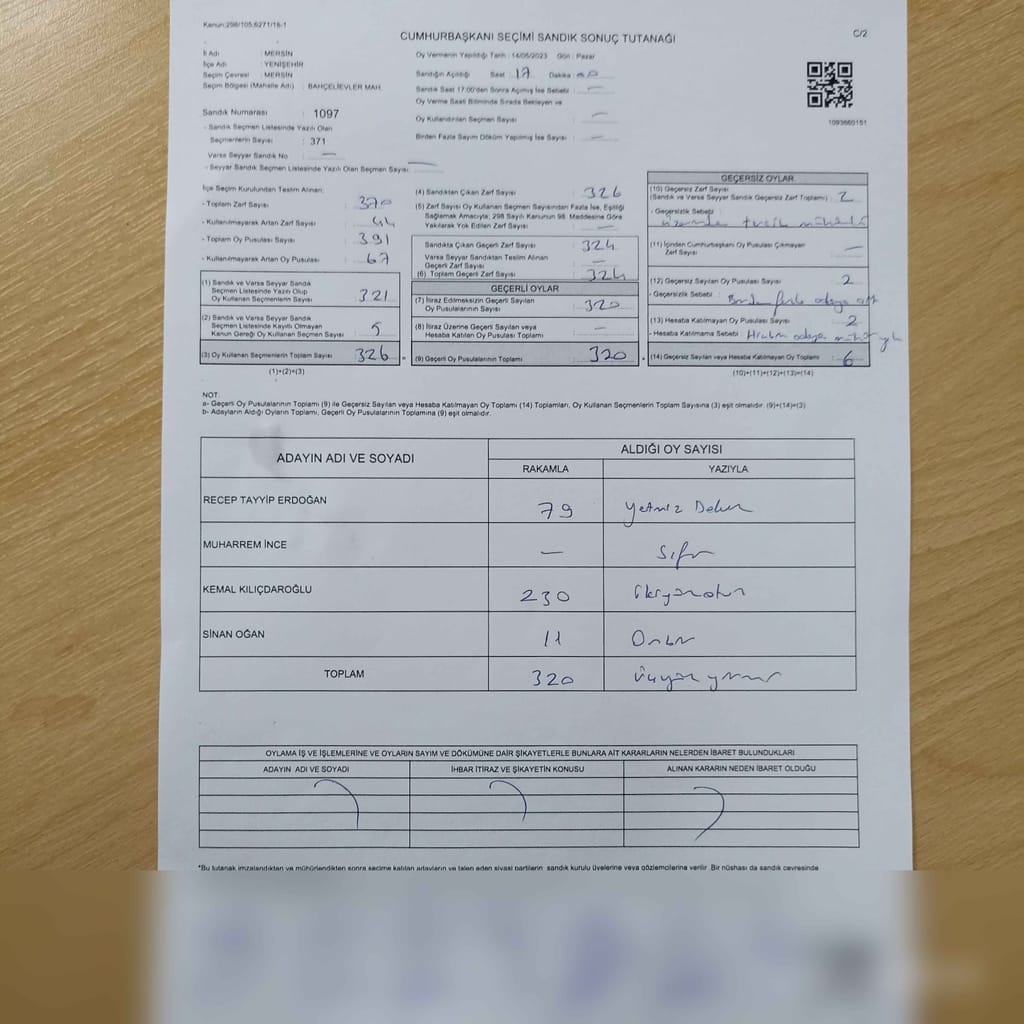 Kanun:298/105,6271/18-1
CUMHURBAŞKANI SEÇİMİ SANDIK SONUÇ TUTANAĞI
C/2
İl Adı : MERSİN
İlçe Adı : YENİŞEHİR
Seçim Çevresi : MERSİN
Seçim Bölgesi (Mahalle Adı) : BAHÇELİEVLER MAH.
Sandık Numarası : 1097
- Sandık Seçmen Listesinde Yazılı Olan
Seçmenlerin Sayısı : 371
Varsa Seyyar Sandık No : —
- Seyyar Sandık Seçmen Listesinde Yazılı Olan Seçmen Sayısı : —
Oy Vermenin Yapıldığı Tarih : 14/05/2023 Gün : Pazar
Sandığın Açıldığı Saat : 17 Dakika : 00
Sandık Saat 17:00'den Sonra Açılmış İse Sebebi : —
Oy Verme Saati Bitiminde Sırada Bekleyen ve
Oy Kullandırılan Seçmen Sayısı : —
Birden Fazla Sayım Döküm Yapılmış İse Sayısı : —
1093660151
İlçe Seçim Kurulundan Teslim Alınan;
- Toplam Zarf Sayısı : 370
- Kullanılmayarak Artan Zarf Sayısı : 44
- Toplam Oy Pusulası Sayısı : 391
- Kullanılmayarak Artan Oy Pusulası : 67
(1) Sandık ve Varsa Seyyar Sandık
Seçmen Listesinde Yazılı Olup
Oy Kullanan Seçmenlerin Sayısı : 321
(2) Sandık ve Varsa Seyyar Sandık
Seçmen Listesinde Kayıtlı Olmayan
Kanun Gereği Oy Kullanan Seçmen Sayısı : 5
(3) Oy Kullanan Seçmenlerin Toplam Sayısı : 326
(1)+(2)=(3)
(4) Sandıktan Çıkan Zarf Sayısı : 326
(5) Zarf Sayısı Oy Kullanan Seçmen Sayısından Fazla İse, Eşitliği
Sağlamak Amacıyla; 298 Sayılı Kanunun 98. Maddesine Göre
Yakılarak Yok Edilen Zarf Sayısı : —
Sandıkta Çıkan Geçerli Zarf Sayısı : 324
Varsa Seyyar Sandıktan Teslim Alınan
Geçerli Zarf Sayısı : —
(6) Toplam Geçerli Zarf Sayısı : 324
GEÇERLİ OYLAR
(7) İtiraz Edilmeksizin Geçerli Sayılan
Oy Pusulalarının Sayısı : 320
(8) İtiraz Üzerine Geçerli Sayılan veya
Hesaba Katılan Oy Pusulası Toplamı : —
(9) Geçerli Oy Pusulalarının Toplamı : 320
GEÇERSİZ OYLAR
(10) Geçersiz Zarf Sayısı
(Sandık ve Varsa Seyyar Sandık Geçersiz Zarf Toplamı) : 2
- Geçersizlik Sebebi : üzerinde tercih mühürlü
(11) İçinden Cumhurbaşkanı Oy Pusulası Çıkmayan
Zarf Sayısı : —
(12) Geçersiz Sayılan Oy Pusulası Sayısı : 2
- Geçersizlik Sebebi : Birden fazla adaya
(13) Hesaba Katılmayan Oy Pusulası Sayısı : 2
- Hesaba Katılmama Sebebi : Hiçbir adaya mühür yok
(14) Geçersiz Sayılan veya Hesaba Katılmayan Oy Toplamı : 6
(10)+(11)+(12)+(13)=(14)
NOT:
a- Geçerli Oy Pusulalarının Toplamı (9) ile Geçersiz Sayılan veya Hesaba Katılmayan Oy Toplamı (14) Toplamları, Oy Kullanan Seçmenlerin Toplam Sayısına (3) eşit olmalıdır. (9)+(14)=(3)
b- Adayların Aldığı Oyların Toplamı, Geçerli Oy Pusulalarının Toplamına (9) eşit olmalıdır.
ADAYIN ADI VE SOYADI
ALDIĞI OY SAYISI
RAKAMLA YAZIYLA
RECEP TAYYİP ERDOĞAN 79 Yetmiş Dokuz
MUHARREM İNCE — Sıfır
KEMAL KILIÇDAROĞLU 230 ikiyüzotuz
SİNAN OĞAN 11 Onbir
TOPLAM 320 üçyüzyirmi
OYLAMA İŞ VE İŞLEMLERİNE VE OYLARIN SAYIM VE DÖKÜMÜNE DAİR ŞİKAYETLERLE BUNLARA AİT KARARLARIN NELERDEN İBARET BULUNDUKLARI
ADAYIN ADI VE SOYADI İHBAR İTİRAZ VE ŞİKAYETİN KONUSU ALINAN KARARIN NEDEN İBARET OLDUĞU
*Bu tutanak imzalandıktan ve mühürlendikten sonra seçime katılan adayların ve talep eden siyasi partilerin sandık kurulu üyelerine veya gözlemcilerine verilir. Bir nüshası da sandık çevresinde